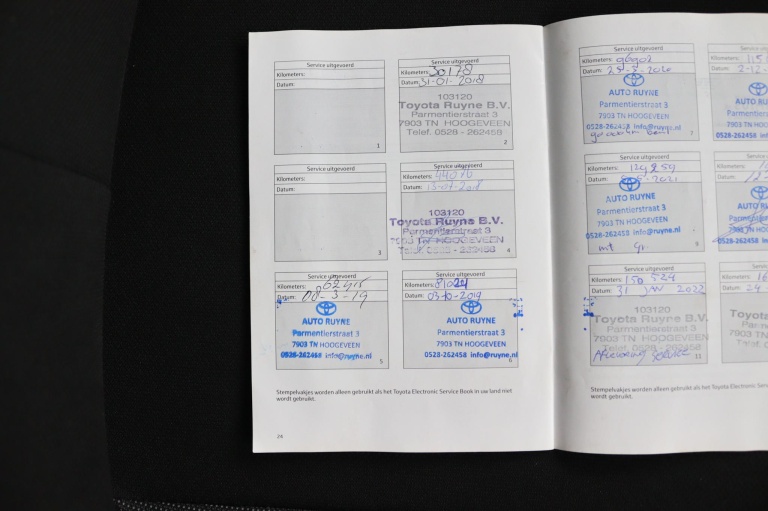 Service uitgevoerd
Kilometers:
Datum:
1
Service uitgevoerd
Kilometers: 30178
Datum: 31-01-2018
103120
Toyota Ruyne B.V.
Parmentierstraat 3
7903 TN HOOGEVEEN
Telef. 0528 - 262458
2
Service uitgevoerd
Kilometers:
Datum:
3
Service uitgevoerd
Kilometers:
Datum:
103120
Toyota Ruyne B.V.
Parmentierstraat 3
7903 TN HOOGEVEEN
Telef. 0528 - 262458
4
Service uitgevoerd
Kilometers:
Datum: 08-3-19
AUTO RUYNE
Parmentierstraat 3
7903 TN HOOGEVEEN
0528-262458 info@ruyne.nl
5
Service uitgevoerd
Kilometers: 81024
Datum: 03-10-2019
AUTO RUYNE
Parmentierstraat 3
7903 TN HOOGEVEEN
0528-262458 info@ruyne.nl
6
Stempelvakjes worden alleen gebruikt als het Toyota Electronic Service Book in uw land niet
wordt gebruikt.
24
Service uitgevoerd
Kilometers:
Datum:
AUTO RUYNE
Parmentierstraat 3
7903 TN HOOGEVEEN
0528-262458 info@ruyne.nl
7
Service uitgevoerd
Kilometers: 129259
Datum:
AUTO RUYNE
Parmentierstraat 3
7903 TN HOOGEVEEN
0528-262458 info@ruyne.nl
9
Service uitgevoerd
Kilometers: 150 524
Datum: 31 jan 2022
Toyota Ruyne B.V.
Parmentierstraat 3
7903 TN HOOGEVEEN
Telef. 0528 - 262458
Aflevering Service
11
Stempelvakjes worden alleen gebruikt als het Toyota Electronic Service
wordt gebruikt.
Service
Kilometers:
Datum: 2-12-
AUTO
Parmentie
7903 TN
0528-262458
Service
Kilometers:
Datum:
AUTO
Parmentier
7903 TN HO
0528-262458
Service
Kilometers: 16
Datum: 24
Toyota
Parm
7903 T
Telef.